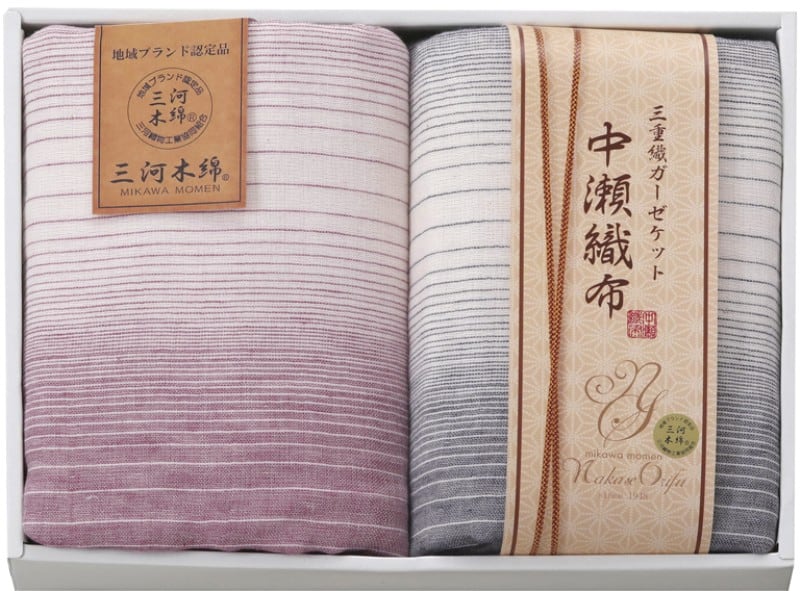 地域ブランド認定品
地域ブランド認定品
三河
木綿®
三河織物工業協同組合
三河木綿®
MIKAWA MOMEN
三重織ガーゼケット
中瀬織布
NY
mikawa momen
Nakase Orifu
since 1948
三河
木綿